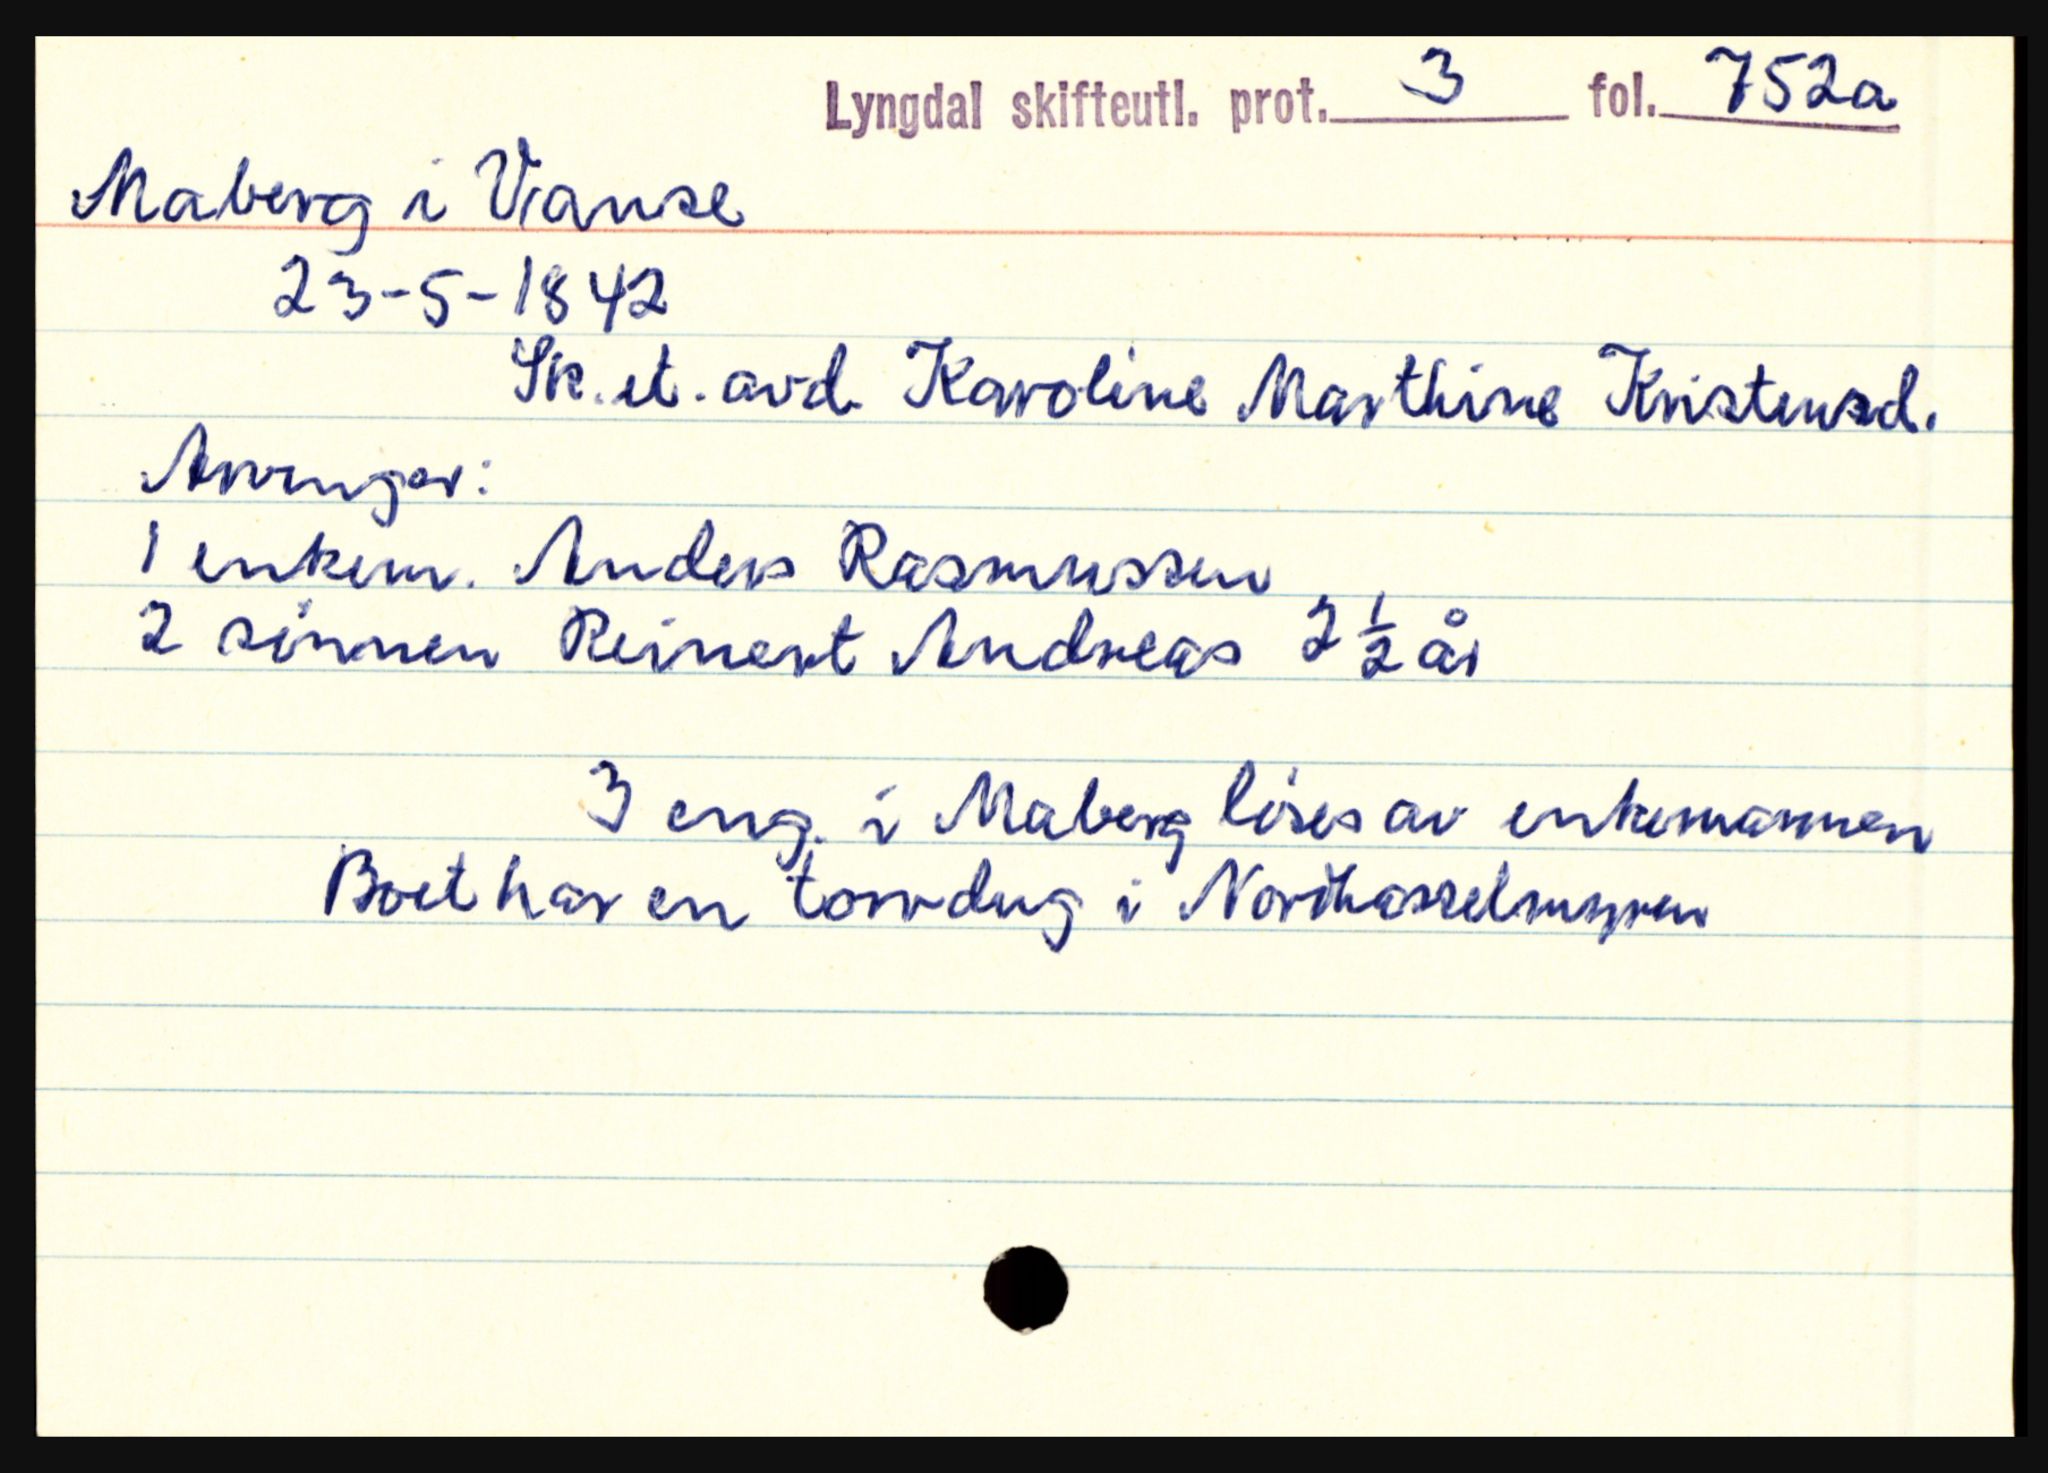 Lyngdal skifteutl. prot. 3 fol. 752a
Maberg i Vanse
23-5-1842
Sk. et. avd. Karoline Marthine Kristensd.
Arvinger:
1 enkem. Anders Rasmussen
2 sönnen Reinert Andreas 2 1/2 år
3 eng. i Maberg löses av enkemannen
Boet har en torvdug i Nordhasselmyren